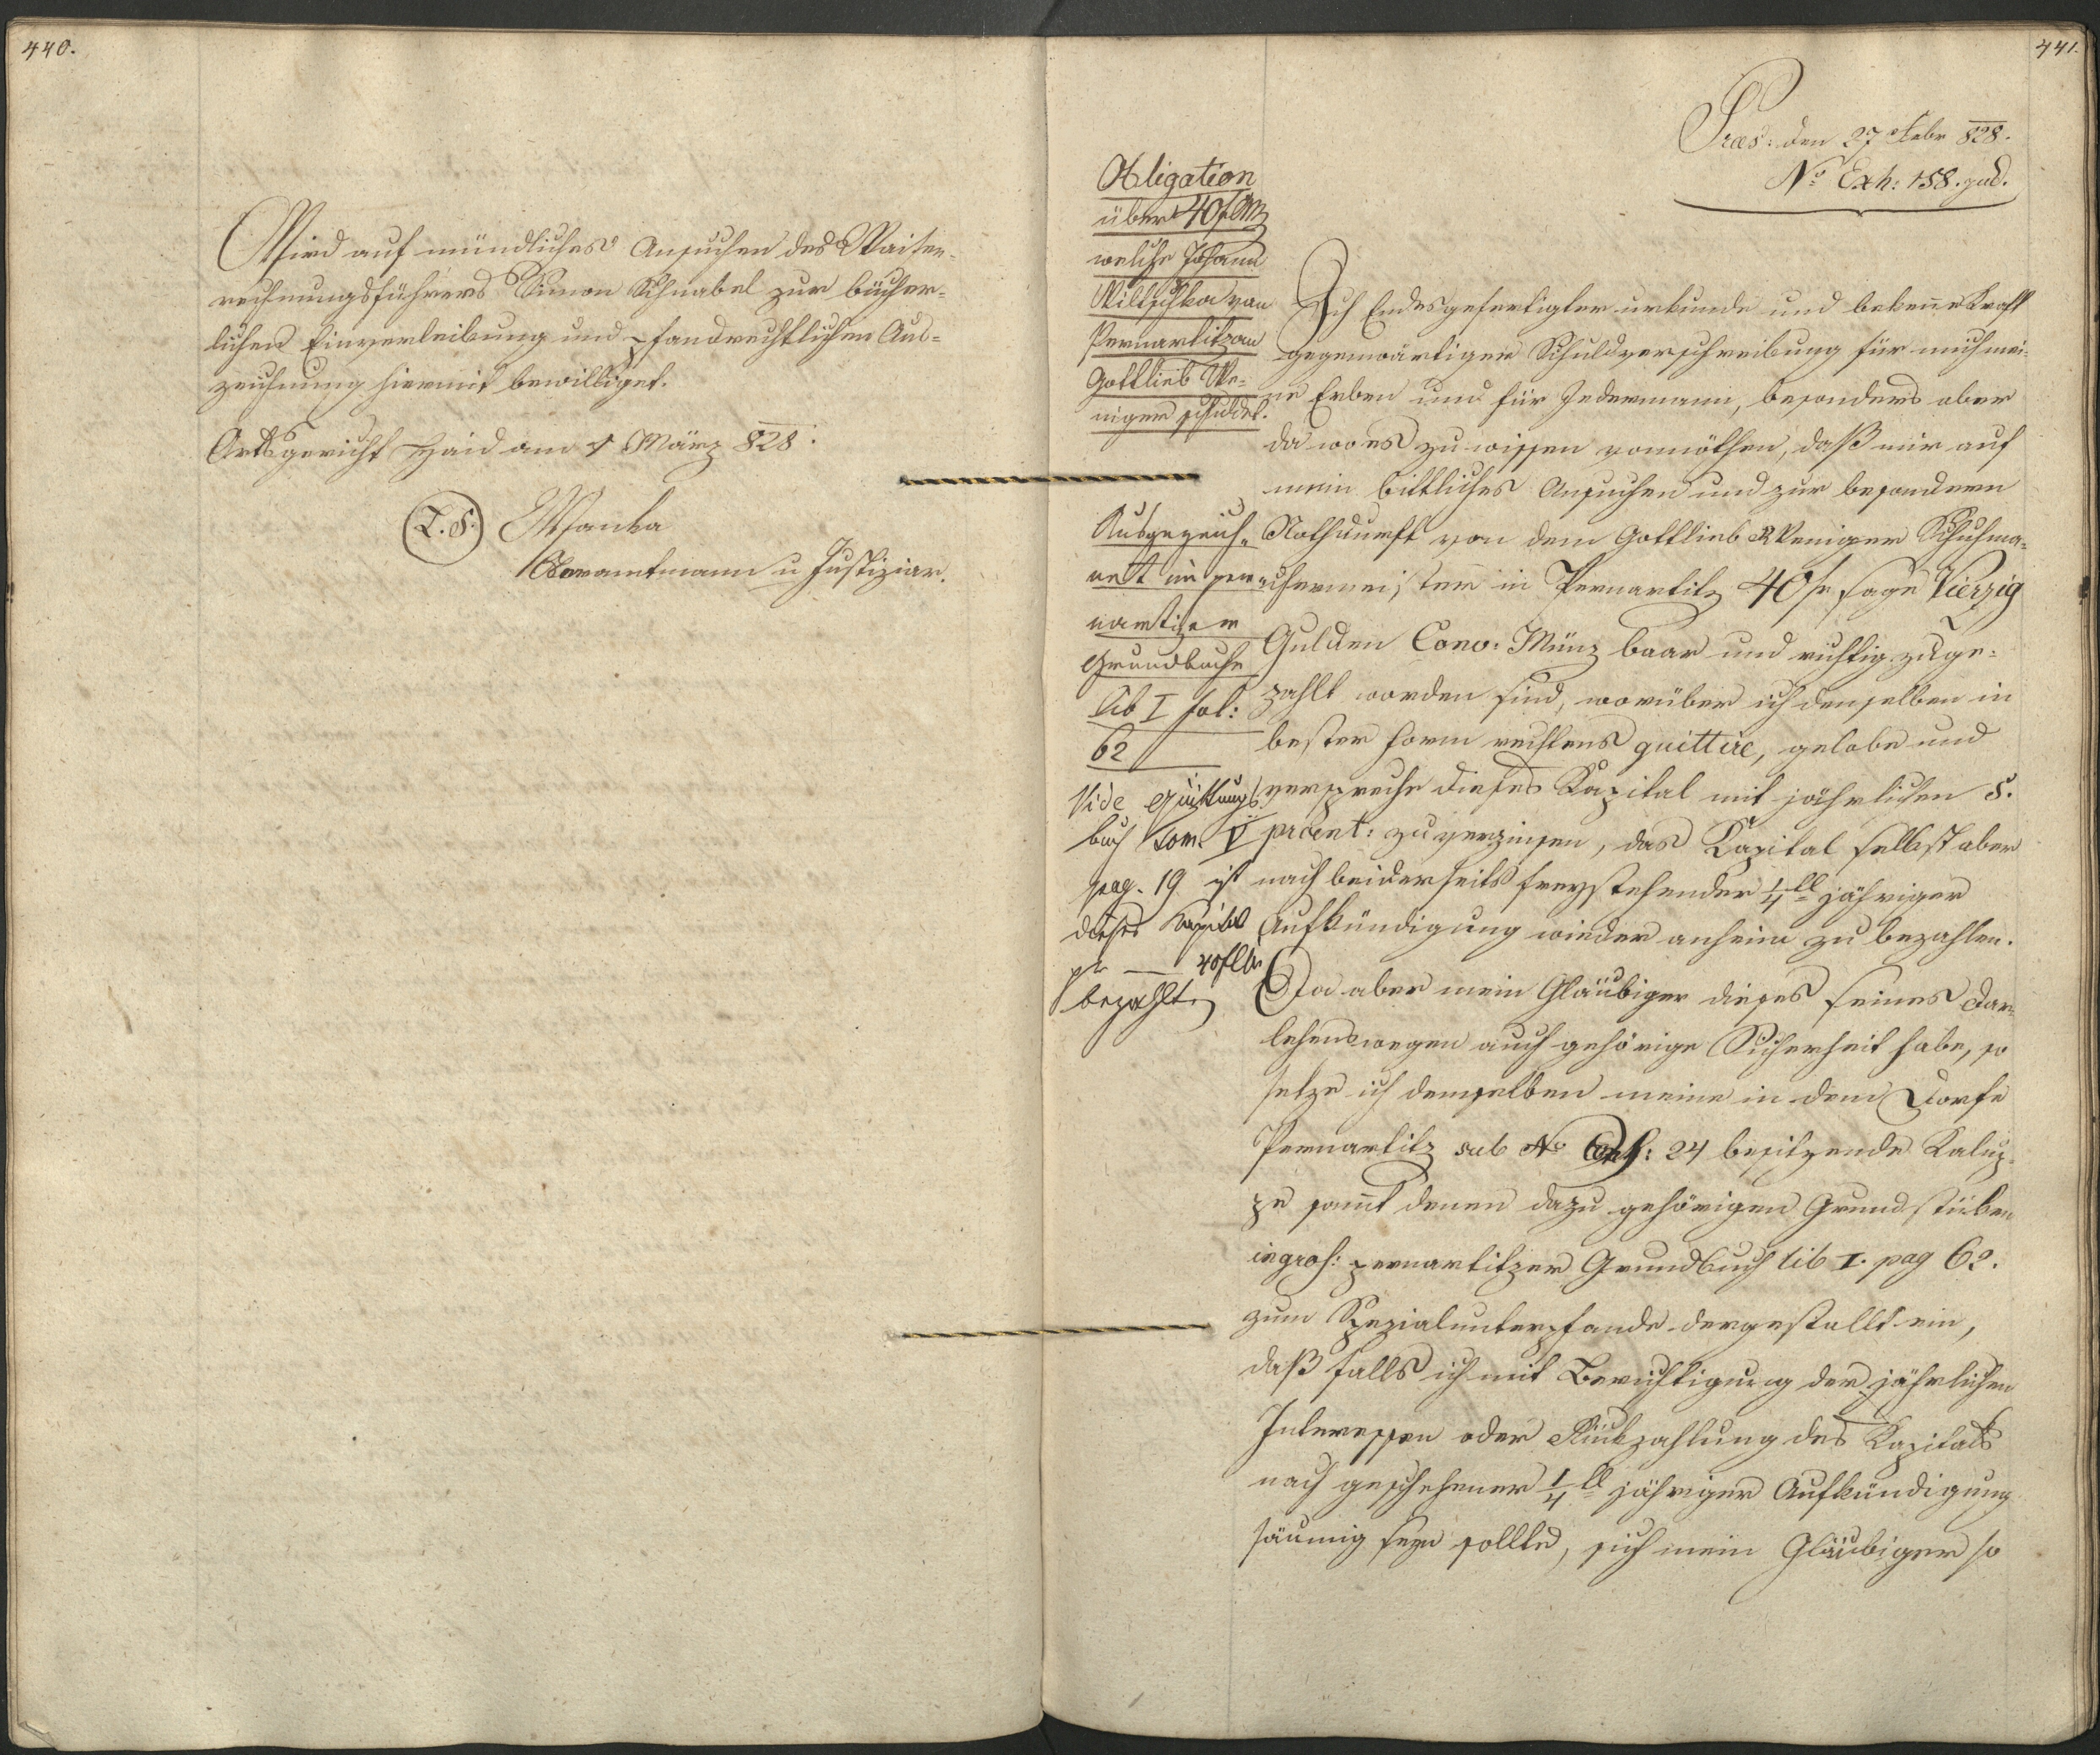 440.
Wird auf mündliches Ansuchen des Waisen-
rechnungsführers Simon Schnabel zur bücher-
lichen Einverleibung und pfandrechtlichen Aus-
zeichnung hiermit bewilliget.
Ortsgericht Haid am 1 März 828.
L. S. Manka
Oberamtmann u Justiziar.
441.
Præs: den 27 Febr 828.
No Exh: 158. jud.
Obligation
über 40 f CMz
welche Johann
Miltschka von
Pernartitz an
Gottlieb We-
niger schuldet.
Ausgezeich-
net im per-
nartizer
Grundbuche
Lib I fol:
62
Vide Quittungs
buch Tom. V
pag. 19 ist
dieses Kapital
pr — 40 fl
bezahlt
Ich Endesgefertigter urkunde und bekenne Kraft
gegenwärtiger Schuldverschreibung für mich mei-
ne Erben und für Jedermann, besonders aber
da wo es zu wissen vonnöthen, daß mir auf
mein bittliches Ansuchen und zur besondern
Nothdurft von dem Gottlieb Weniger Schuhma-
chermeister in Pernartitz 40 f sage Vierzig
Gulden Conv: Münz baar und richtig zuge-
zahlt worden sind, worüber ich denselben in
bester Form rechtens quittire, gelobe und
verspreche dieses Kapital mit jährlichen 5.
procent: zu verzinsen, das Kapital selbst aber
nach beiderseits freystehender 1/4ll jähriger
Aufkündigung wieder anheim zu bezahlen.
Da aber mein Gläubiger dieses seines Dar-
lehens wegen auch gehörige Sicherheit habe, so
setze ich demselben meine in dem Dorfe
Pernartitz sub No Consc: 24 besitzende Kalup-
pe sammt denen dazu gehörigen Grundstücken
ingros: pernartitzer Grundbuch lib I. pag 62.
zum Spezialunterpfande dergestallt ein,
daß falls ich mit Berichtigung der jährlichen
Interessen oder Rückzahlung des Kapitals
nach geschehener 1/4ll jähriger Aufkündigung
säumig seyn sollte, sich mein Gläubiger so